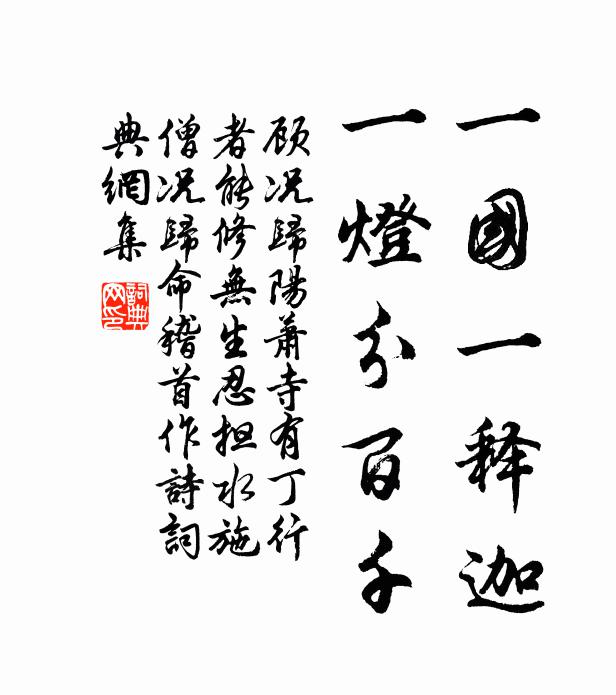 一國一释迦
一燈分百千
顾况歸陽蕭寺有丁行
者能修無生忍担水施
僧况歸命稽首作詩詞
典網集
詞典网印